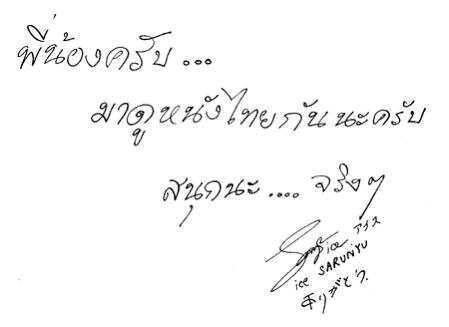 พี่น้องครับ ...
มาดูหนังไทยกันนะครับ
สนุกนะ.... จริงๆ
ice アイス
ice SARUNYU
ありがとう